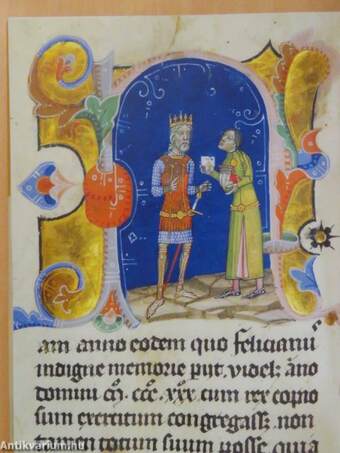 am anno eodem quo felicianus
indigne memorie piit. videlꝫ āno
domini m̄. ccc. xxx. cum rex copio
sum exercitum congregassꝫ non
tamen totum suum posse quia
Antikvarium.hu